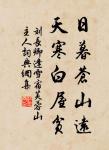 日暮苍山远
天寒白屋贫
刘长卿逢雪宿芙蓉山
主人词典网集